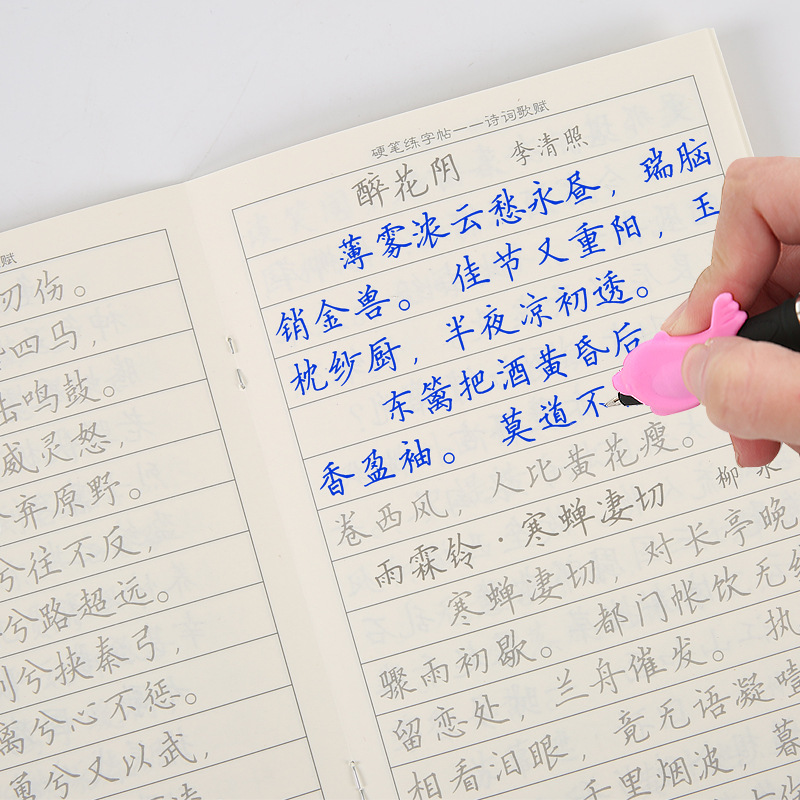 赋
刃伤。
四马，
击鸣鼓。
威灵怒，
弃原野。
兮往不反，
兮路超远。
兮挟秦弓，
离兮心不惩。
勇兮又以武，
硬笔练字帖——诗词歌赋
醉花阴 李清照
薄雾浓云愁永昼，瑞脑
销金兽。佳节又重阳，玉
枕纱厨，半夜凉初透。
东篱把酒黄昏后
香盈袖。莫道不
卷西风，人比黄花瘦。
雨霖铃·寒蝉凄切 柳永
寒蝉凄切，对长亭晚
骤雨初歇。都门帐饮无绪
留恋处，兰舟催发。执
相看泪眼，竟无语凝噎
千里烟波，暮